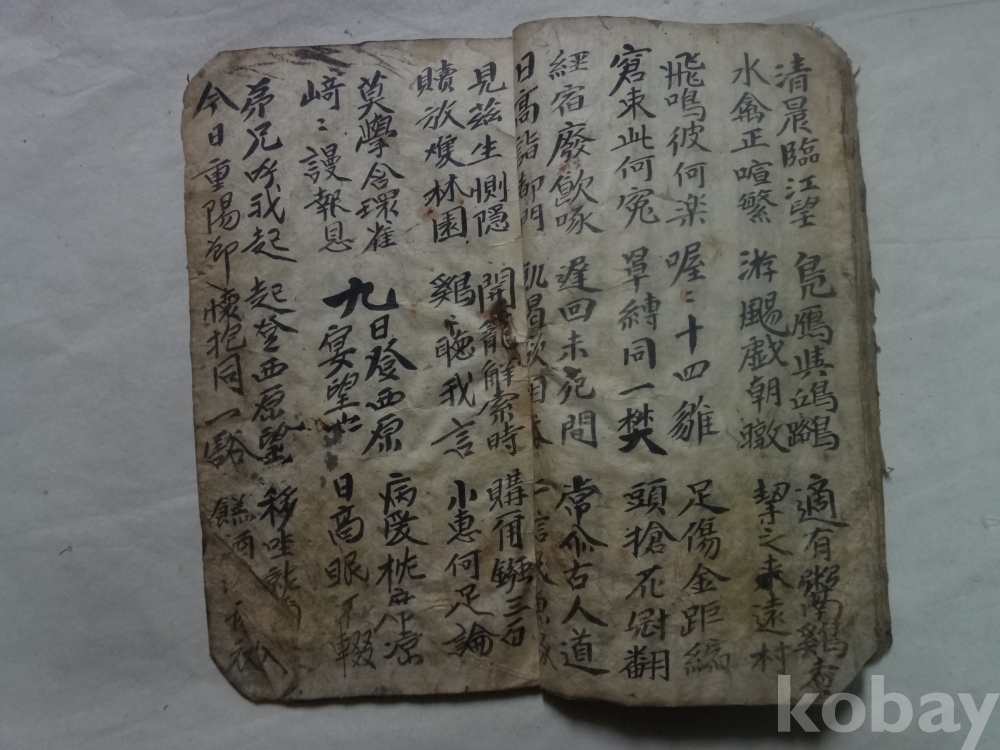 清晨臨江望 鳧鴈與鷗鷺 適有鬻鷄者
水禽正喧繁 游颺戯朝暾 挈之来遠村
飛鳴彼何楽 喔〻十四雛 足傷金距縮
窘束此何冤 罩縛同一樊 頭搶花冠翻
經宿廢飮啄 遲回未死間 常慕古人道
日高詣 門
見茲生惻隱 開籠解索時 購爾鏹三百
贖放雙林園 鷄〻聽我言 小惠何足論
莫學含環雀 九日登西原 病愛枕席凉
崎〻謾報恩 宴望 日高眠不輟
弟兄呼我起 起登西原望 移坐就
今日重陽節 懷抱同一豁 糕酒